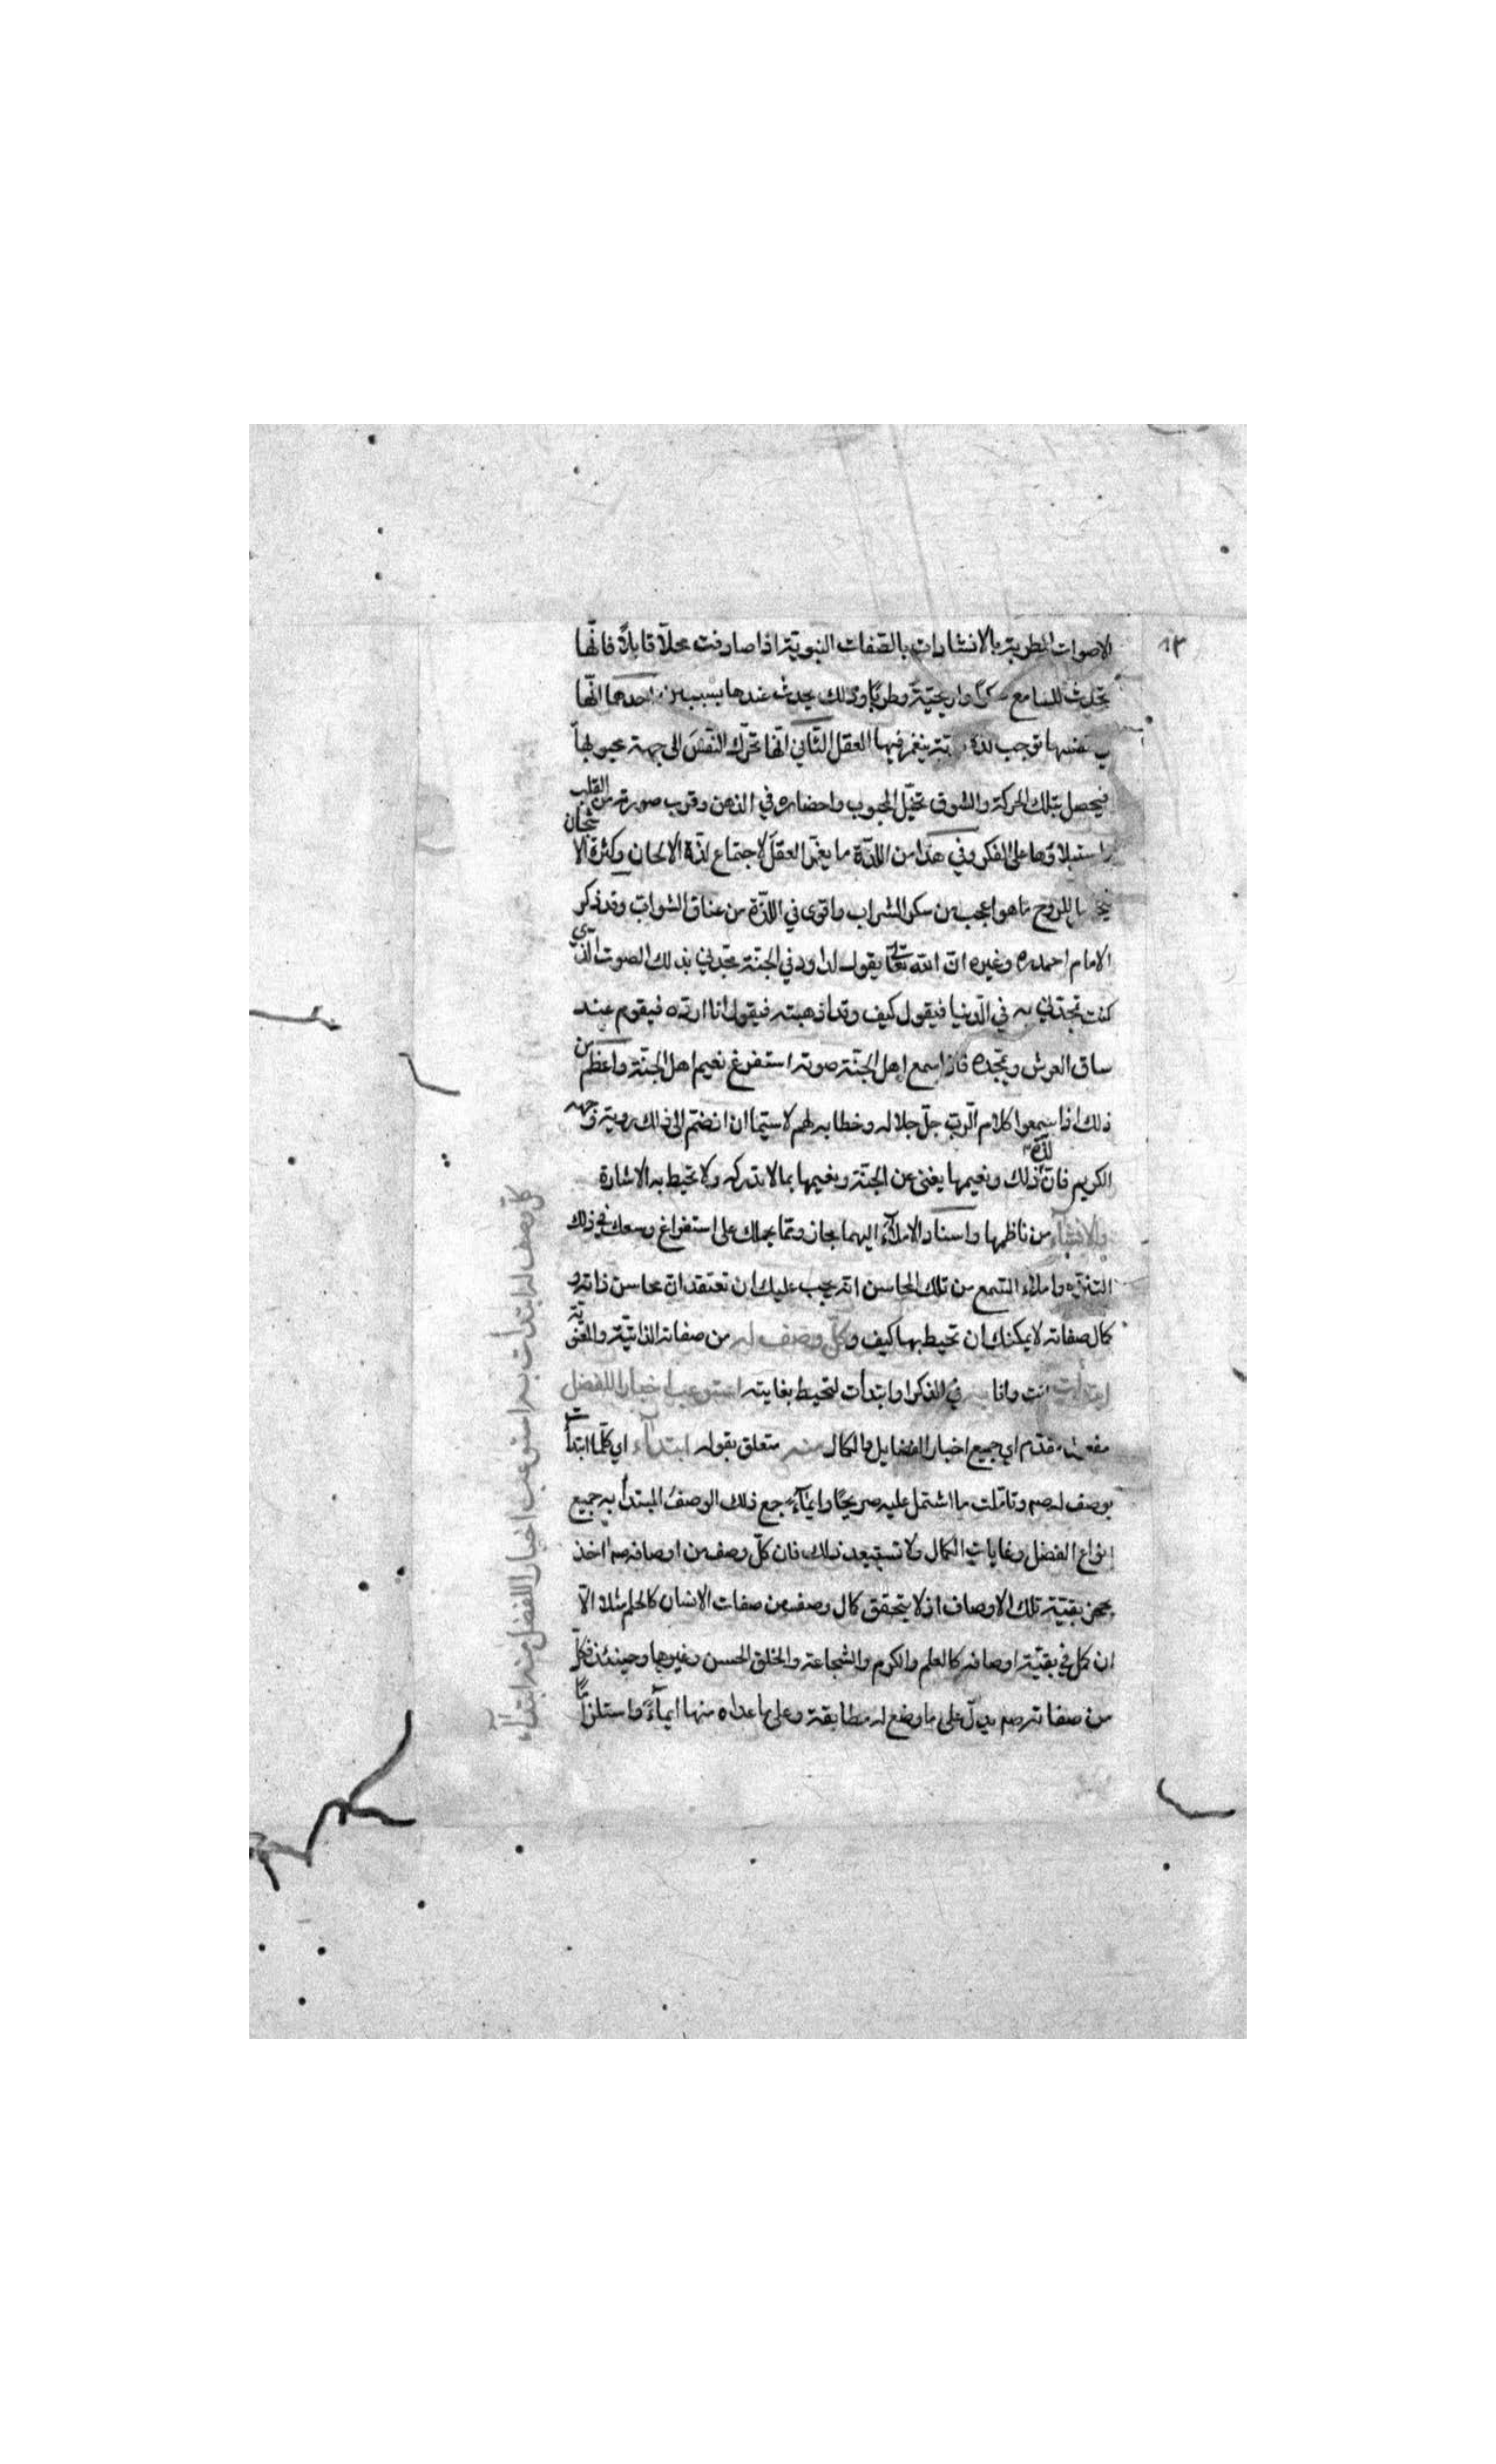 ١٣
الاصوات المطربة بالانشادات بالصفات النبوية اذا صادفت محلّا قابلاً فانّها
تحدث للسامع سكراً واريحيّة وطربًا وذلك يحدث عندها بسببين احدهما انّها
في نفسها توجب لذة ينغمر فيها العقل الثّاني انّها تحرّك النّفسَ الى جهة محبوبها
فيحصل بتلك الحركة والشوق تخيّل المحبوب واحضاره في الذهن وقرب صورته من القلب
واستيلاؤها على الفكر وفي هذا من اللذّة ما يغمر العقلَ لاجتماع لذّة الالحان وكثرة الاشجان
للروح ما هو اعجب من سكر الشراب واقوى في اللذّة من عناق الشواب وقد ذكر
الامام احمد ره وغيره انّ الله تعالى يقول لداود في الجنّة مجّدني بذلك الصوت الّذي
كنت تمجّدني به في الدّنيا فيقول كيف وقد اذهبته فيقول انا اردّه فيقوم عند
ساق العرش ويمجّده فاذا سمع اهل الجنّة صوته استفرغ نعيم اهل الجنّة واعظم من
ذلك اذا سمعوا كلام الربّ جلّ جلاله وخطابه لهم لا سيّما ان انضمّ الى ذلك روية وجهه
الكريم فانّ لذّة ذلك ونعيمها يغني عن الجنّة ونعيمها بما لا تدركه ولا تحيط به الاشارة
والانشاء من ناظمها واسناد الاملاء اليهما مجاز وممّا يحملك على استفراغ وسعك في ذلك
التنزيه واملاء السّمع من تلك المحاسن انّه يجب عليك ان تعتقد انّ محاسن ذاته و
كمال صفاته لا يمكنك ان تحيط بها كيف وكلّ وصف له من صفاته الذاتيّة والمعنويّة
ابتدأت انت وانا به في الفكر او ابتدأت لتحيط بغايته استوعب اخبار الفضل
مفعول مقدّم اي جميع اخبار الفضايل والكمال منه متعلق بقوله ابتداء اي كلّما ابتدأت
بوصف له صم وتامّلت ما اشتمل عليه صريحًا وايماءً جمع ذلك الوصفُ المبتدأ به جميع
انواع الفضل وغايات الكمال ولا تستبعد ذلك فان كلّ وصف من اوصافه صم اخذ
بحجز بقيّة تلك الاوصاف اذ لا يتحقق كمال وصف من صفات الانسان كالحلم مثلا الّا
ان كمل في بقيّة اوصافه كالعلم والكرم والشجاعة والخلق الحسن وغيرها وحينئذ فكلّ
من صفاته صم يدلّ على ما وضع له مطابقة وعلى ما عداه منها ايماءً واستلزامًا
كلّ وصف له ابتدأت به استوعب اخبار الفضل منه ابتداء